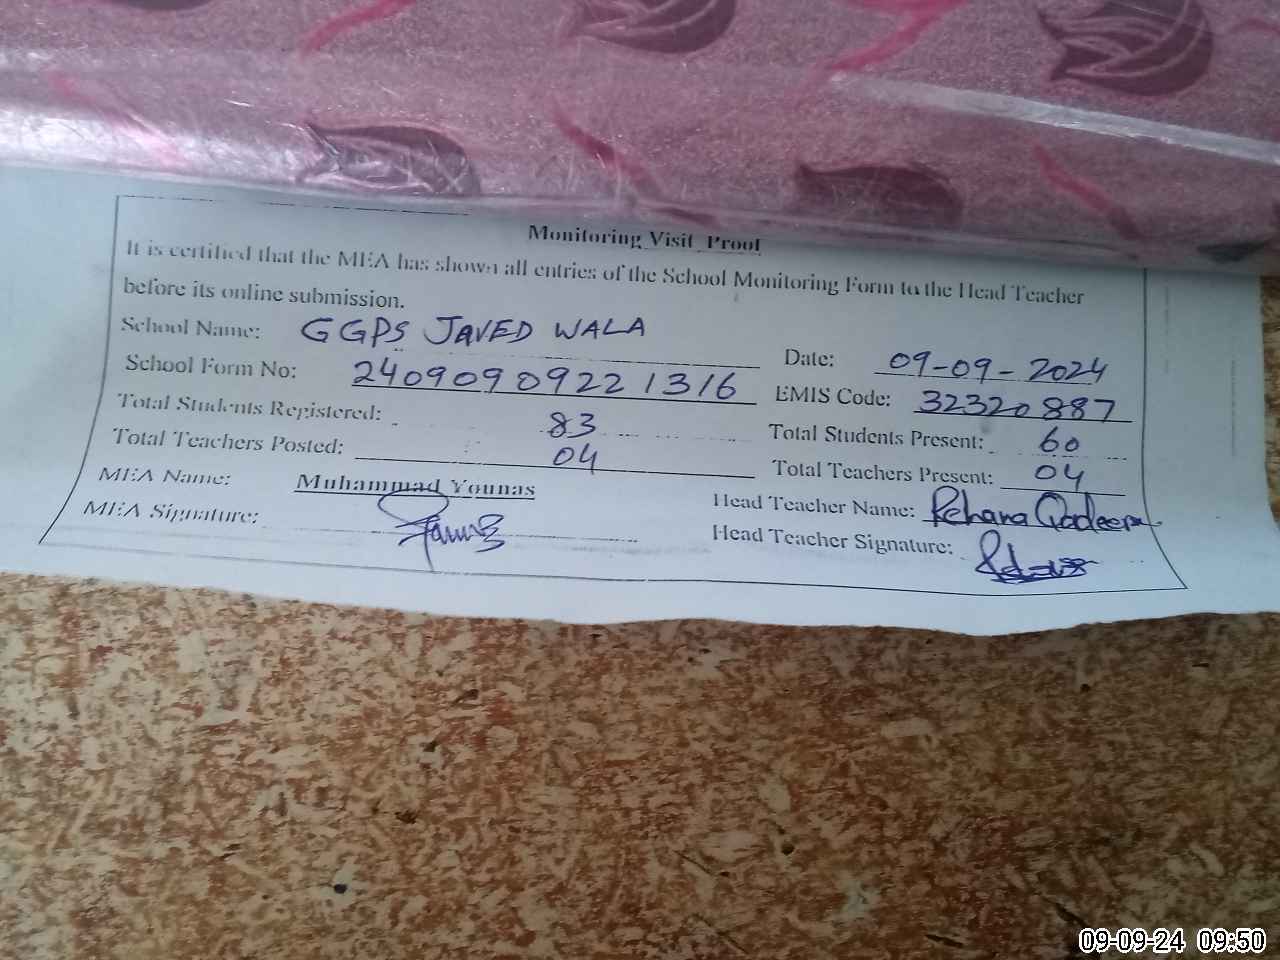 Monitoring Visit Proof
It is certified that the MEA has shown all entries of the School Monitoring Form to the Head Teacher
before its online submission.
School Name: GGPS JAVED WALA Date: 09-09-2024
School Form No: 24090909221316 EMIS Code: 32320887
Total Students Registered: 83 Total Students Present: 60
Total Teachers Posted: 04 Total Teachers Present: 04
MEA Name: Muhammad Younas Head Teacher Name: Rehana Qadeer
MEA Signature: Head Teacher Signature:
09-09-24 09:50